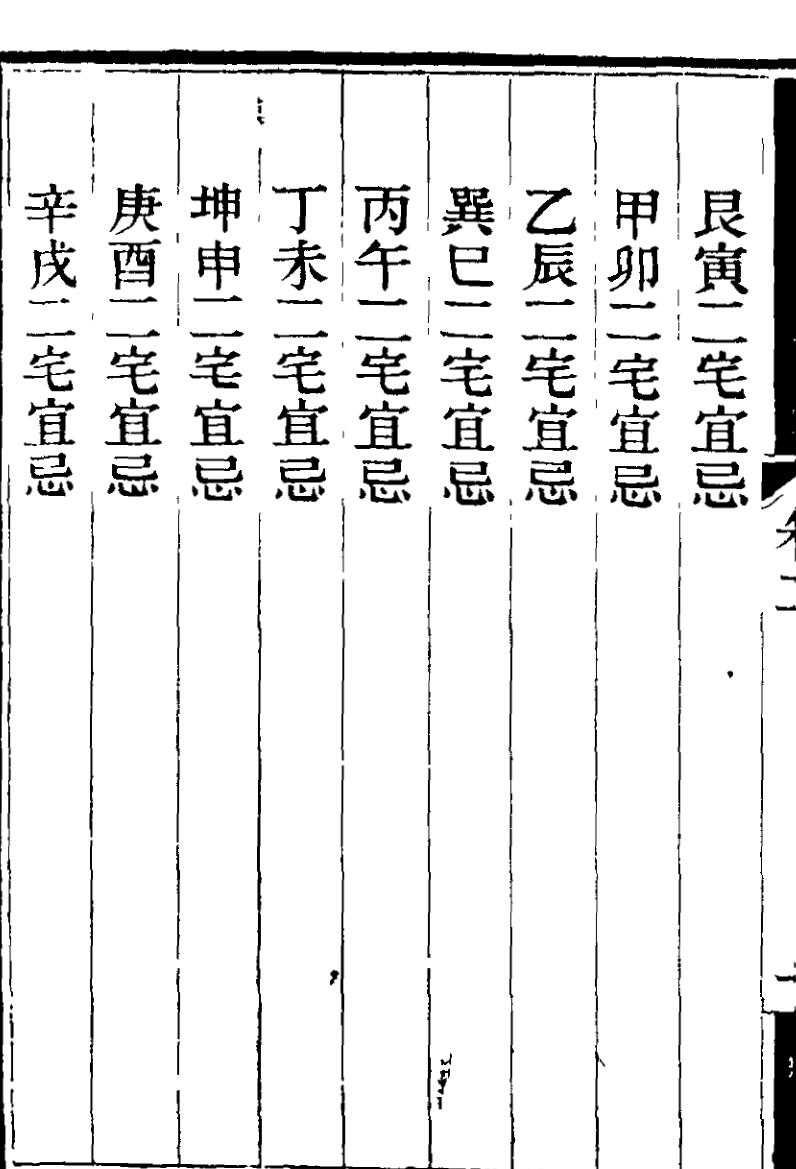 艮寅二宅宜忌
甲卯二宅宜忌
乙辰二宅宜忌
巽巳二宅宜忌
丙午二宅宜忌
丁未二宅宜忌
坤申二宅宜忌
庚酉二宅宜忌
辛戌二宅宜忌